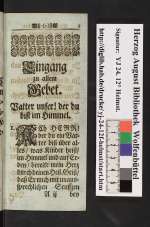 Eingang
zu allem
Gebet.
Vatter unser / der du
bist im Himmel.
ACh HERR!
der du ein Vat-
ter bist über al-
les / was Kinder heist /
im Himmel und auf Er-
den / bereite mein Hertz
durch deinen Heil. Geist /
daß Er mich mit unauß-
sprechlichen Seufftzen
A ij
bey
Herzog August Bibliothek Wolfenbüttel
Signatur: YJ 24. 12° Helmst.
http://diglib.hab.de/drucke/yj-24-12f-helmst/start.htm